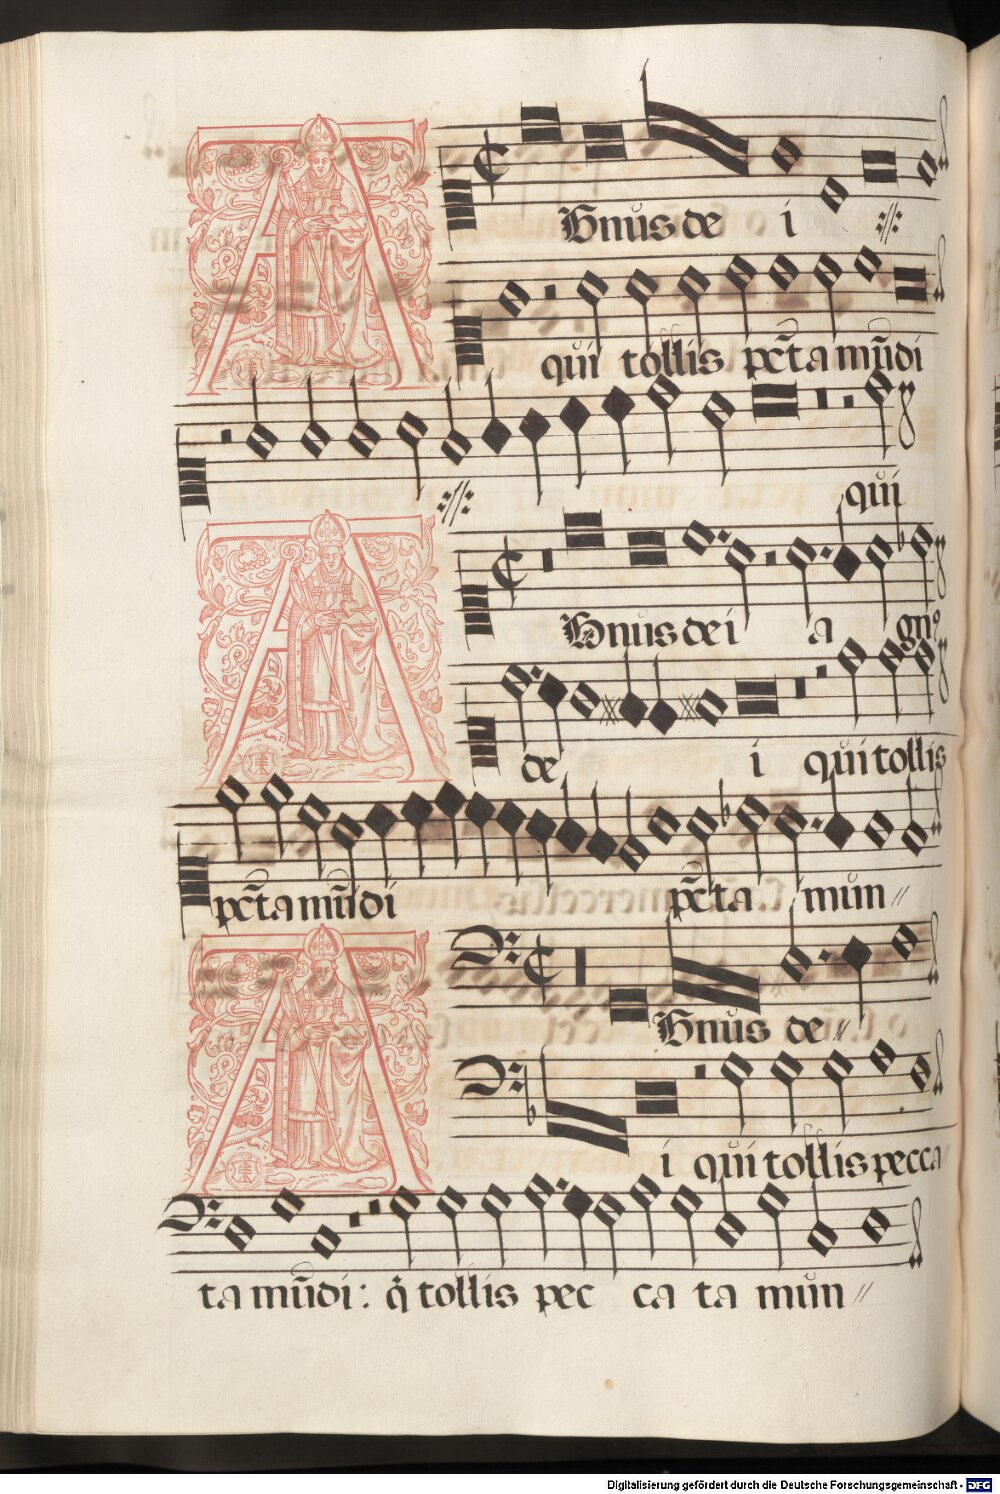 Agnus dei
qui tollis pctā mūdi
qui
Agnus dei a gnꝰ
de i qui tollis
pctā mūdi pctā mun
Agnus de
i qui tollis pecca
ta mūdi: q̄ tollis pec ca ta mun
Digitalisierung gefördert durch die Deutsche Forschungsgemeinschaft - DFG